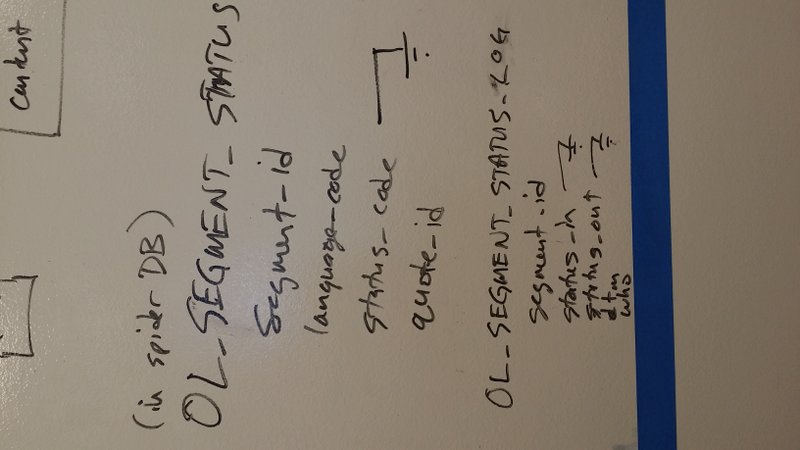 content
(in spider DB)
OL_SEGMENT_STATUS
Segment-id
language-code
status_code
quote_id
OL_SEGMENT_STATUS_LOG
segment-id
status_in
status_out
dtm
who